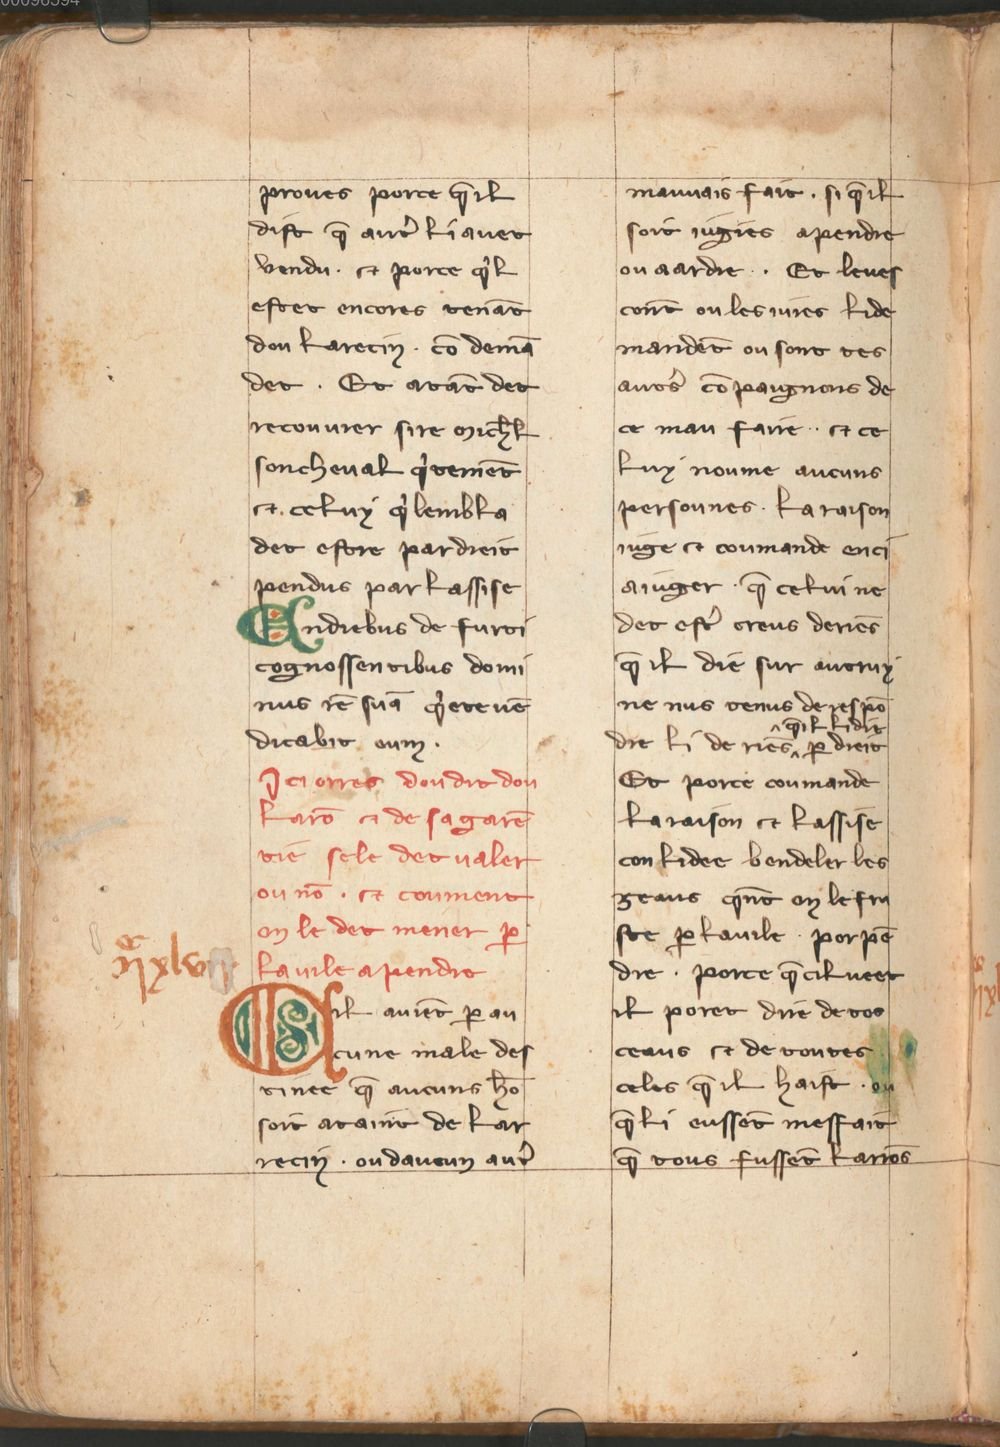 proues porce q̄ il
dist q̄ autͬ ki auet
vendu · et porce qͥl
estet encores tenāt
dou larecin · cō demā
det · Et atāt det
recouurer sire mich̄l
son cheual qͥtemēt
et celuy qͥ lembla
det estre par dreit
pendus par lassise
Endiebus de furti
cognossentibus domi
nus rē suā qͥete uē
dicabit eum ·
Ici orres dou dit dou
larō et de sa garē
tie se le det ualer
ou nō · et coument
on le det mener ꝑ
la uile a pendre
SIl auiēt ꝑ au
cune male des
tinee q̄ aucuns hō
soit ataint de lar
recin · ou daucun autͬ
mauuais fait · si q̄ il
soit iugies a pendre
ou a ardre · Et leues
cōrt ou les iures li de
mandēt ou sont tes
autͬs cōpaignons de
ce mau faire · et ce
luy noume aucuns
persounes · La raison
iuge et coumande enci
a iuger · q̄ celui ne
det estͬ creus de riēs
q̄ il die sur autruy
ne nus tenus de respō
q̄ il li dit
dre li de riēs ꝑ dreit
Et porce coumande
la raison et lassise
con li dee bendeler les
zeaus qͣnt on le fru
ste ꝑ la uile · por pē
dre · porce q̄ cil ueet
il poret dire de tos
ceaus et de toutes
celes q̄ il haist · ou
q̄ li eussēt messait
q̄ tous fussēt larrōs